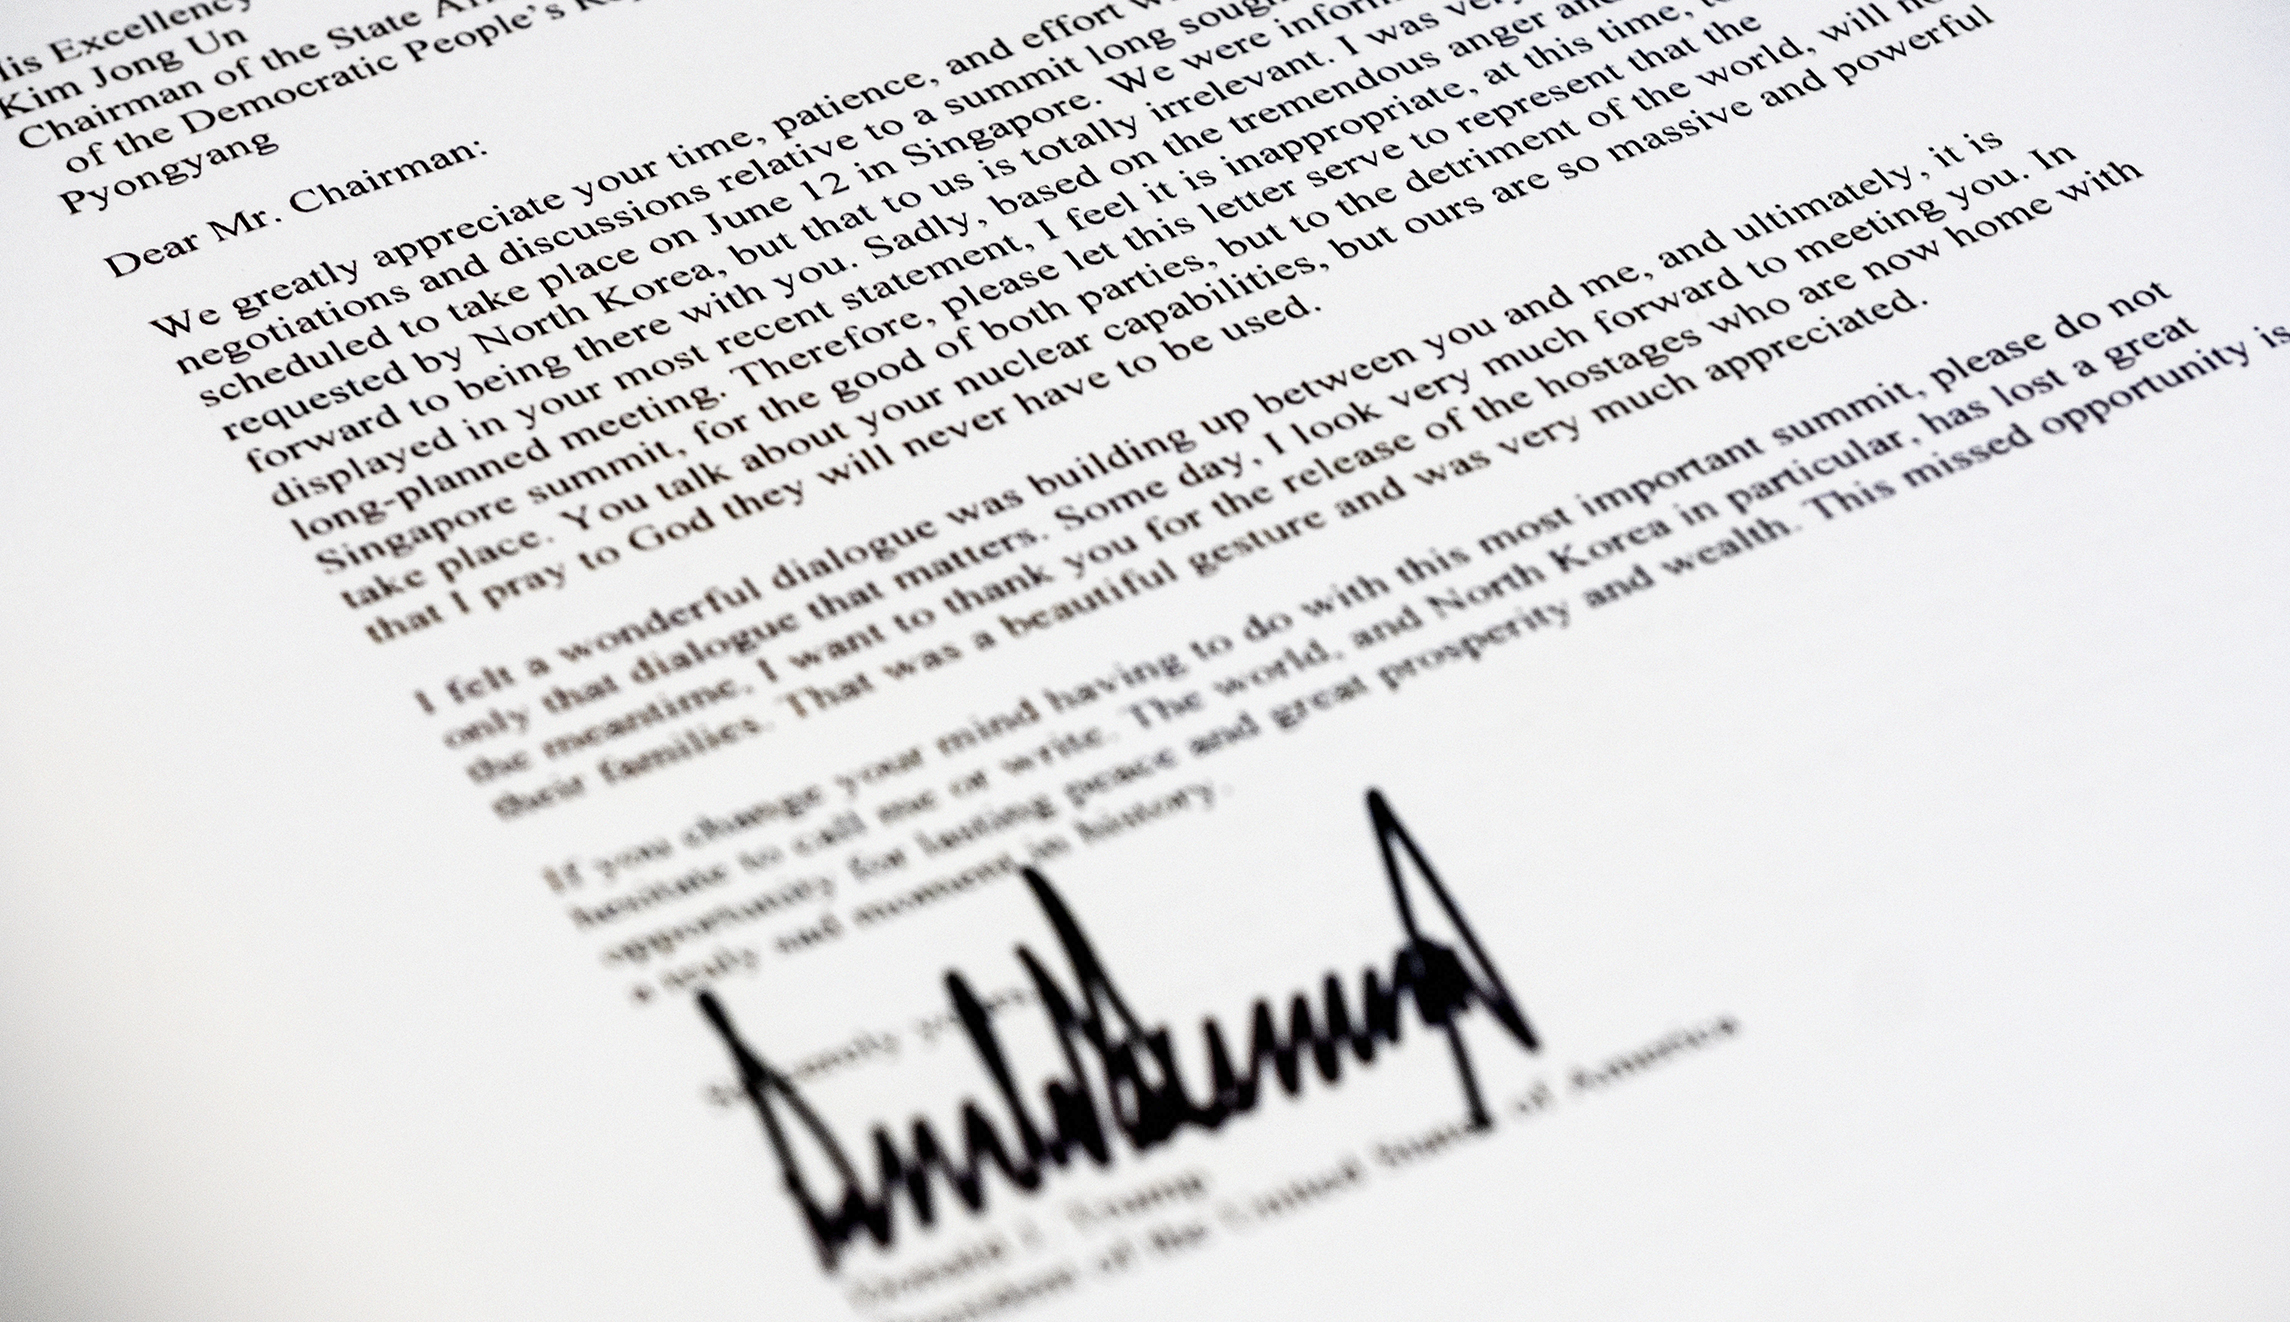 His Excellency
Kim Jong Un
Chairman of the State
of the Democratic People's
Pyongyang
Dear Mr. Chairman:
We greatly appreciate your time, patience, and effort
negotiations and discussions relative to a summit long
scheduled to take place on June 12 in Singapore. We were
requested by North Korea, but that to us is totally irrelevant. I was
forward to being there with you. Sadly, based on the tremendous anger
displayed in your most recent statement, I feel it is inappropriate, at this time,
long-planned meeting. Therefore, please let this letter serve to represent that the
Singapore summit, for the good of both parties, but to the detriment of the world, will
take place. You talk about your nuclear capabilities, but ours are so massive and powerful
that I pray to God they will never have to be used.
I felt a wonderful dialogue was building up between you and me, and ultimately, it is
only that dialogue that matters. Some day, I look very much forward to meeting you. In
the meantime, I want to thank you for the release of the hostages who are now home with
their families. That was a beautiful gesture and was very much appreciated.
If you change your mind having to do with this most important summit, please do not
hesitate to call me or write. The world, and North Korea in particular, has lost a great
opportunity for lasting peace and great prosperity and wealth. This missed opportunity is
a truly sad moment in history.
Donald J. Trump
President of the United States of America